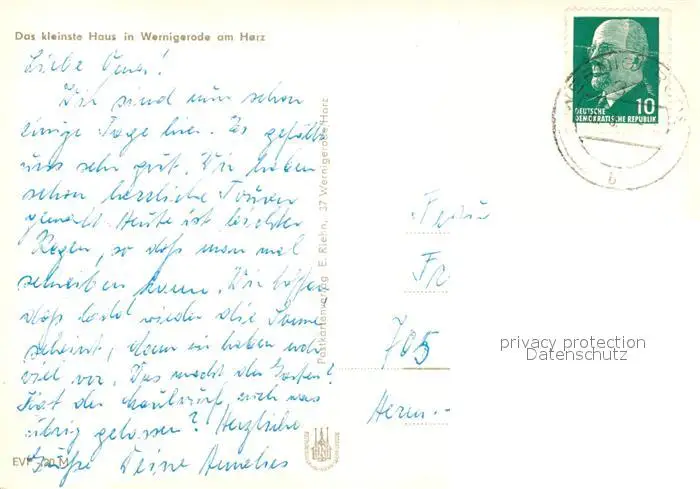 Das kleinste Haus in Wernigerode am Harz
Liebe
Wir sind nun schon
einige Tage hier. Es gefällt
uns sehr gut. Wir haben
schon herrliche Touren
gemacht. Heute ist leichter
Regen, so daß man mal
schreiben kann. Wir hoffen
daß bald wieder die Sonne
scheint, denn wir haben noch
viel vor. Das macht der Garten?
Läßt der Maulwurf euch was
übrig gelassen? Herzliche
Grüße Deine Annelies
EVP
Postkartenverlag E. Riehn, 37 Wernigerode/Harz
10
DEUTSCHE
DEMOKRATISCHE REPUBLIK
b
Frau
Fr
705
privacy protection
Datenschutz